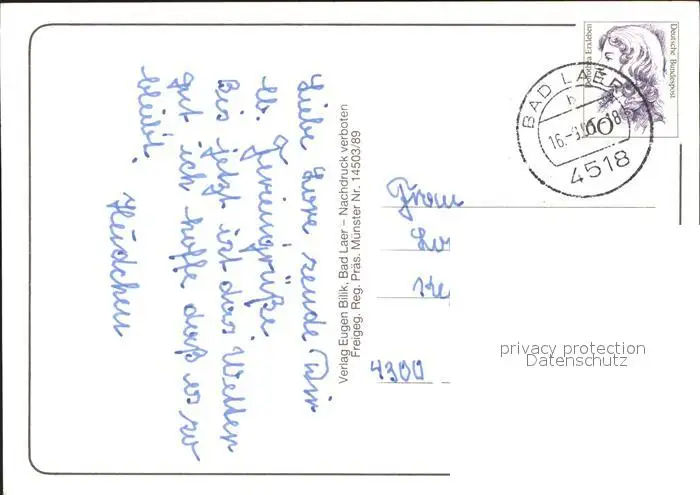 Liebe Lore sende Dir
lb. Feriengrüße
Bis jetzt ist das Wetter
gut ich hoffe daß es so
bleibt.
Verlag Eugen Bilik, Bad Laer – Nachdruck verboten
Freigeg. Reg. Präs. Münster Nr. 14503/89
Dorothea Erxleben
Deutsche Bundespost
60
BAD LAER
h
4518
Frau
4300
privacy protection
Datenschutz